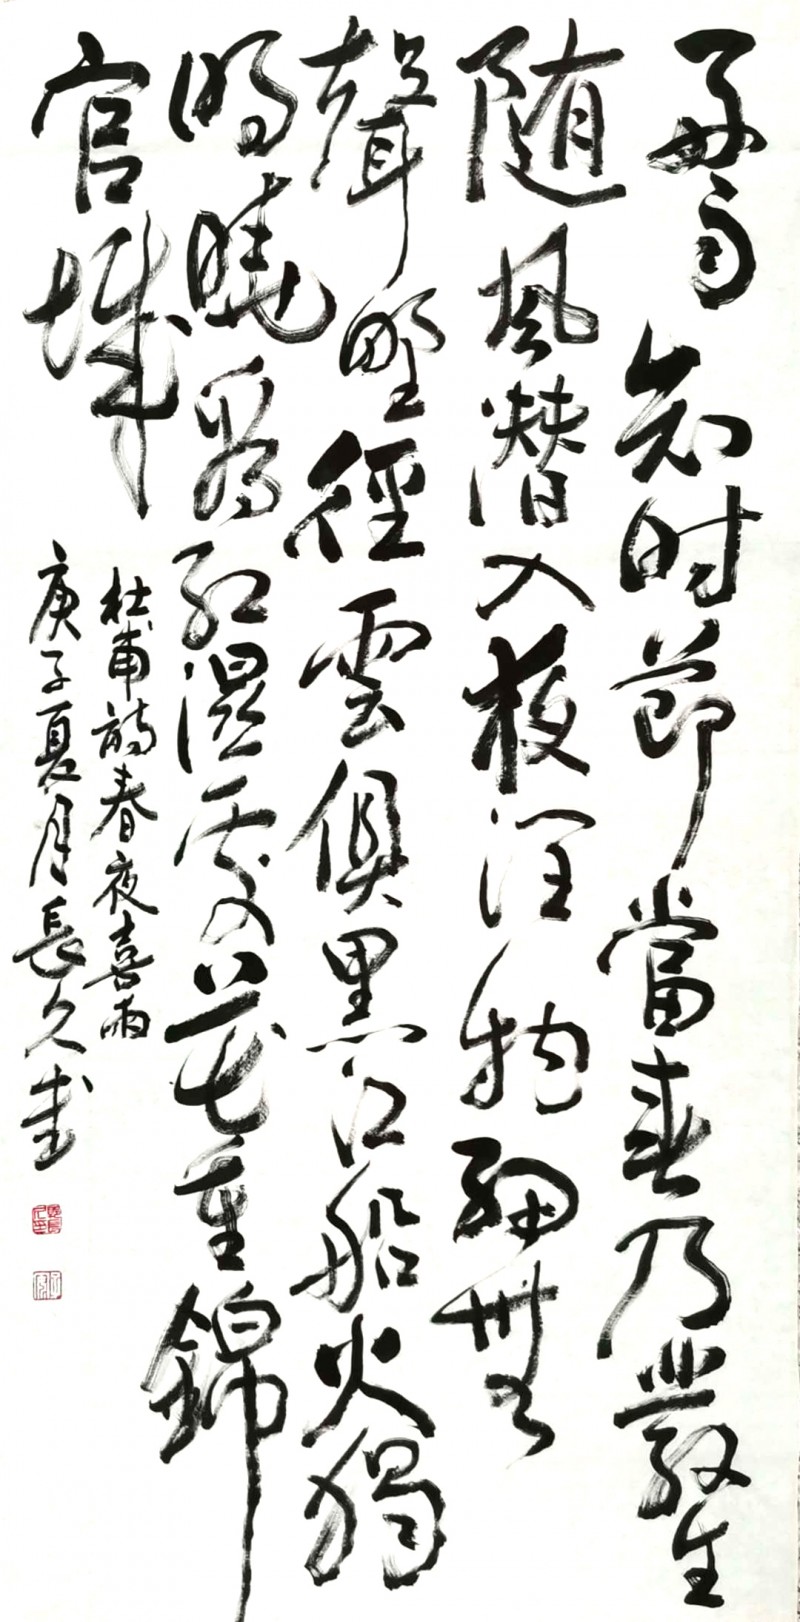 好雨知时節當春乃發生
随風潜入夜润物细無
聲野徑雲俱黑江船火獨
明曉看红濕處花重錦
官城
杜甫詩春夜喜雨
庚子夏月長久書